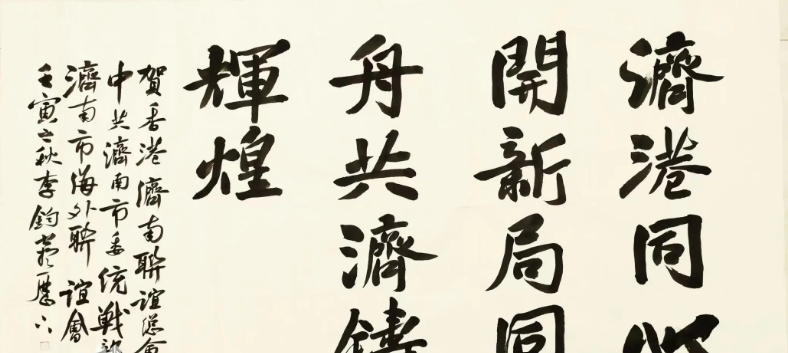 濟港同心
開新局同
舟共濟鑄
輝煌
賀香港濟南聯誼總會
中共濟南市委統戰部
濟南市海外聯誼會
壬寅之秋李鈞